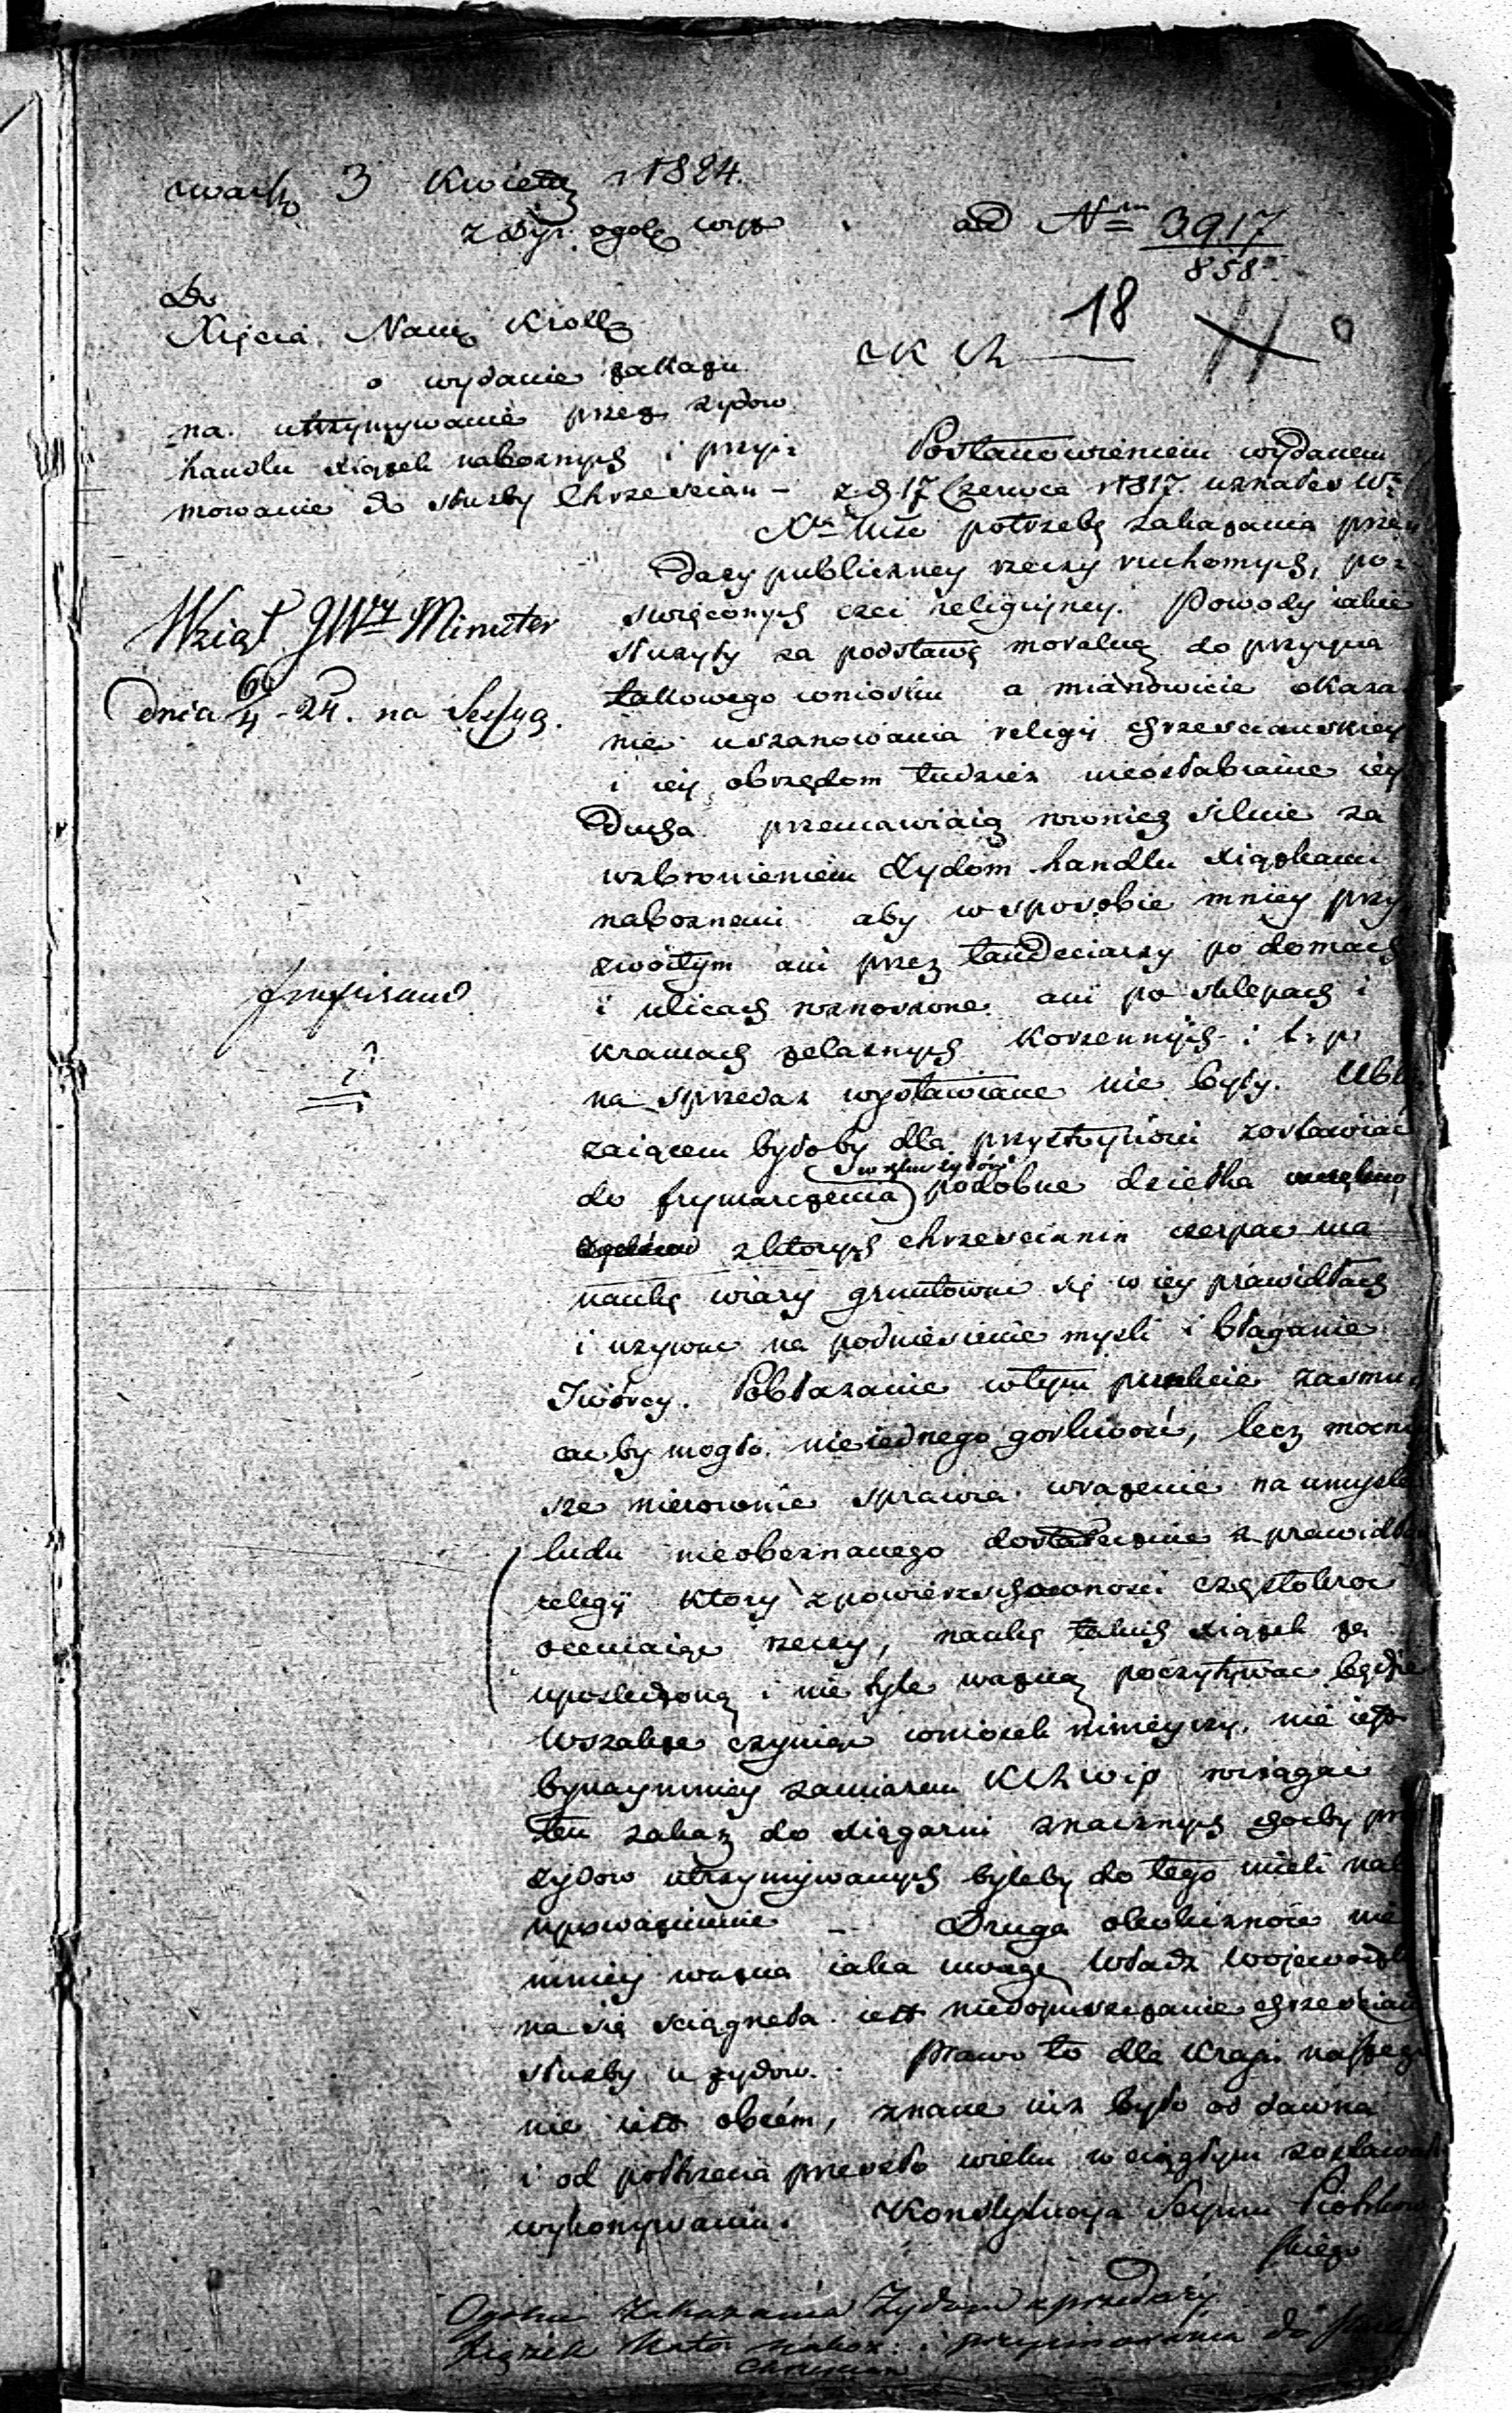 3 Kwiet 1824.
z Dyr. ogol wyz
ad Nrm 3917
858
Do
Xięcia Nam Kroll
18
11
o wydanie zakazu
na utrzymywanie przez zydow
handlu xiązek naboznych i przyi
mowanie do służby Chrzescian –
Wziął JWny Minister
dnia 6/4 – 24. na Sessyą.
?
Postanowieniem wydanem
z d 17 Czerwca 1817. uznałes Wa
Xca Mść potrzebę zakazania przez
Dazy publiczney rzeczy ruchomych, po
święconych czci religiyney. Powody iakie
służyły za podstawę moralną do przyięcia
takowego wniosku a mianowicie okaza
nie uszanowania religii chrzescianskiey
i iey obrzędom tudzież nieosłabianie iey
Ducha przemawiaią rownież silnie za
wzbronieniem Zydom handlu xiązkami
naboznemi aby w sposobie mniey przy
zwoitym ani przez tandeciarzy po domach
i ulicach roznoszone ani po sklepach i
kramach zelaznych korzennych i t. p.
na sprzedaz wystawiane nie były. Ubli
zaiącem byłoby dla przyzwoitości zostawiać
do frymarczenia podobne dziełka
z ktorych chrzescianin czerpac ma
naukę wiary gruntowac się w iey prawidłach
i uzywac na podniesienie mysli i błaganie
Twórcy. Pobłazanie w tym punkcie zasmu
cacby mogło nieiednego gorliwosć, lecz mocniey
sze nierownie sprawia wrazenie na umysle
ludu nieobeznanego dostatecznie z prawidłami
religii ktory z powierzchowności częstokroc
oceniaiąc rzeczy, naukę takich xiązek za
uposledzoną i nie tyle wazną poczytywac będzie
Wszakze czyniąc wniosek ninieyszy nie iest
bynaymniey zamiarem KRzWiP rosciągać
ten zakaz do xięgarni znacznych choćby przez
Zydow utrzymywanych byleby do tego mieli nal
upowaznienie – Druga okoliczność nie
mniey wazna iaka uwagę Władz Woiewodzk
na się sciągnęła iest niedopuszczanie chrzescian
służby u zydow. Prawo to dla Kraiu naszego
nie iest obcém, znane iuz było od dawna
i od potrzecia przeszło wieku w ciągłym zostawało
wykonywaniu. Konstytucya Seymu Piotrkow
skiego
Zakazania Zydom sprzedazy
Xiązek naboz. i przyimowania do służ
Chrzescian